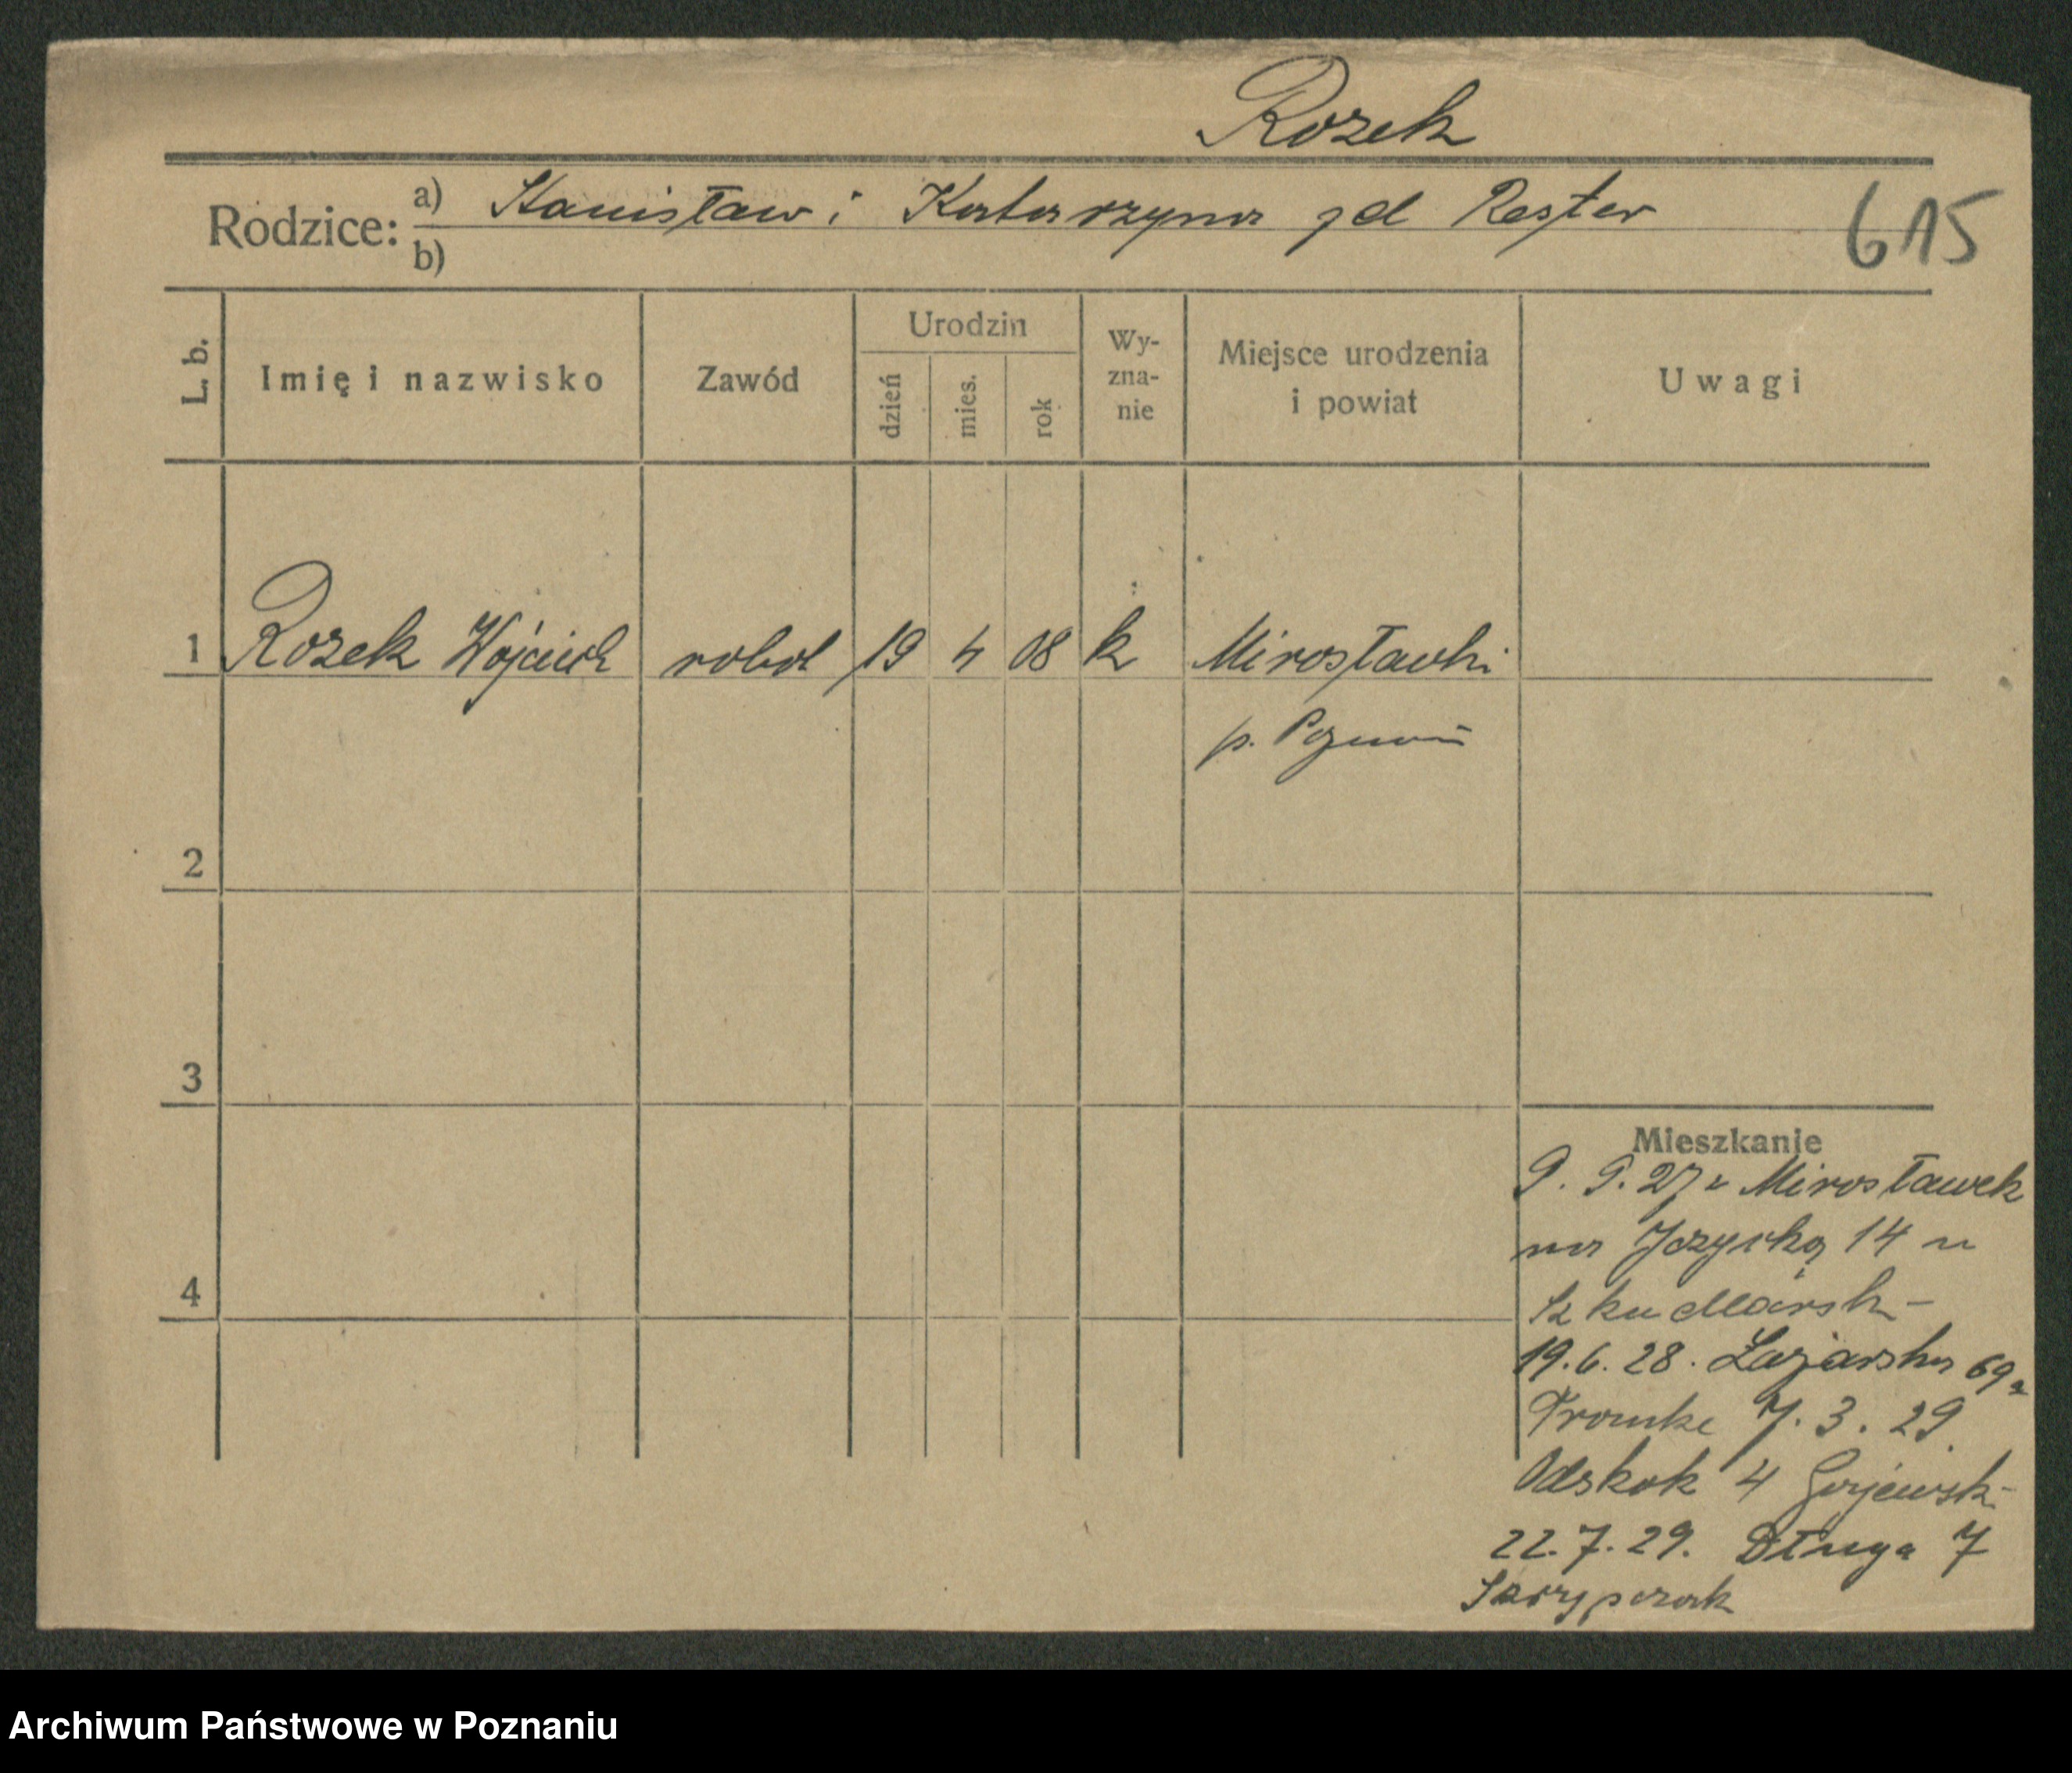 Rozek
Rodzice: a) Stanisław i Katarzyna zd Rester
b)
615
L. b.
Imię i nazwisko
Zawód
Urodzin
dzień
mies.
rok
Wy-
zna-
nie
Miejsce urodzenia
i powiat
Uwagi
1 Rozek Wojciech robot 19 4 08 k Mirosławki
p. Poznań
2
3
4
Mieszkanie
9. 9. 27 z Mirosławek
na 14 u
Szkudlarsk-
19.6.28. Łazarska 69a
Tromke 7.3.29.
Odskok 4 Gajewsk-
22.7.29. Długa 7
Skrzypczak
Archiwum Państwowe w Poznaniu